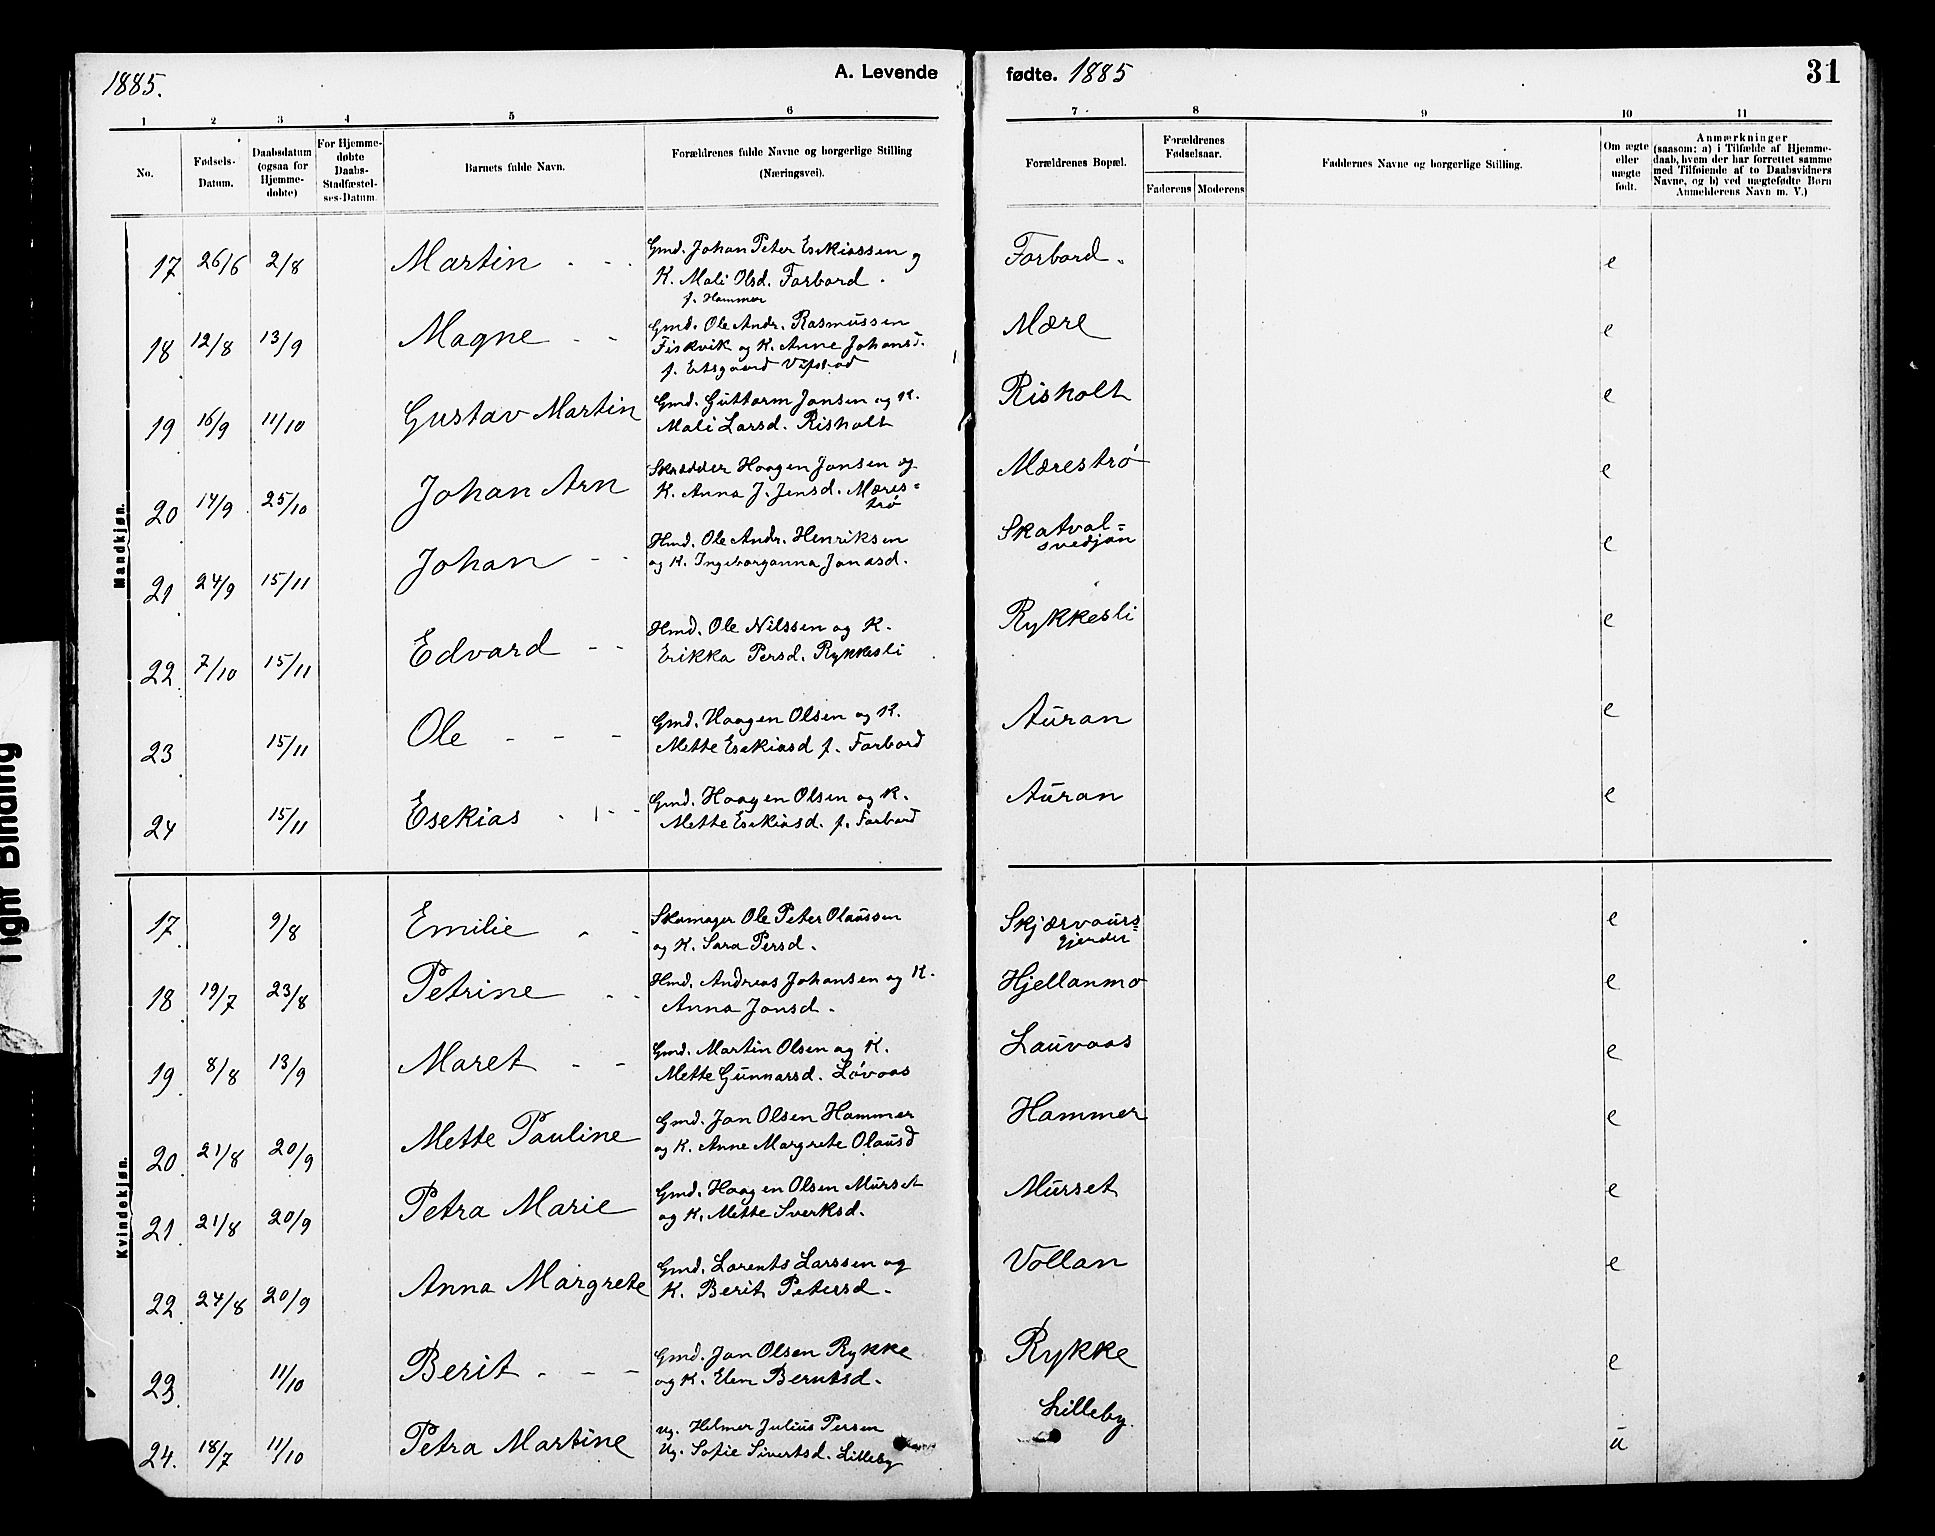 1885.
A. Levende
fødte. 1885
31
1 2 3 4 5 6 7 8 9 10 11
No.
Fødsels-
Datum.
Daabsdatum
(ogsaa for
Hjemme-
døbte)
For Hjemme-
døbte
Daabs-
Stadfæstel-
ses-Datum.
Barnets fulde Navn.
Forældrenes fulde Navne og borgerlige Stilling
(Næringsvei).
Forældrenes Bopæl.
Forældrenes
Fødselsaar.
Faderens Moderens
Faddernes Navne og borgerlige Stilling.
Om ægte
eller
uægte
født.
Anmærkninger
(saasom: a) i Tilfælde af Hjemme-
daab, hvem der har forrettet samme
med Tilføiende af to Daabsvidners
Navne, og b) ved uægtefødte Børn
Anmelderens Navn m. V.)
Mandkjøn.
17 26/6 2/8 Martin - - Gmd. Johan Peter Esekiassen og Forbord. e
K. Mali Olsd. Forbord.
f. Hammer
18 12/8 13/9 Magne - - Gmd. Ole Andr. Rasmussen Mære e
Fiskvik og K. Anne Johansd.
f.
19 16/9 11/10 Gustav Martin Gmd. Guttorm Jonsen og K. Risholt e
Mali Larsd. Risholt
20 14/9 25/10 Johan Arn Skrædder Haagen Jonsen og Mærestrø e
K. Anna J. Jensd. Mæres=
trø
21 24/9 15/11 Johan - - Hmd. Ole Andr. Henriksen Skatval= e
svedjan
og K. Ingeborganna Jonasd.
22 7/10 15/11 Edvard - - Hmd. Ole Nilssen og K. Rykkesli e
Erikka Persd. Rykkesli
23 15/11 Ole - - - Gmd. Haagen Olsen og K. Auran e
Mette Esekiasd f. Forbord
24 15/11 Esekias - - - Gmd. Haagen Olsen og K. Auran e
Mette Esekiasd. f. Forbord
Kvindekjøn.
17 9/8 Emilie - - Skomager Ole Peter Olaussen Skjærvaurs= e
gjerdet
og K. Sara Persd.
18 19/7 23/8 Petrine - - Hmd. Andreas Johansen og K. Hjellanmo e
Anna Jonsd.
19 8/8 13/9 Maret - - Gmd. Martin Olsen og K. Lauvaas e
Mette Gunnarsd. Løvaas
20 21/8 20/9 Mette Pauline Gmd. Jon Olsen Hammer Hammer e
og K. Anne Margrete Olausd
21 21/8 20/9 Petra Marie Gmd. Haagen Olsen Murset Murset e
og K. Mette Sverksd.
22 24/8 20/9 Anna Margrete Gmd. Lorents Larssen og Vollan e
K. Berit Petersd.
23 11/10 Berit - - - Gmd. Jon Olsen Rykke Rykke e
og K. Elen Berntsd.
24. 18/7 11/10 Petra Martine Ug. Hilmer Julius Persen Lilleby. u
Ug. Sofie Sivertsd. Lilleby
Tight Binding